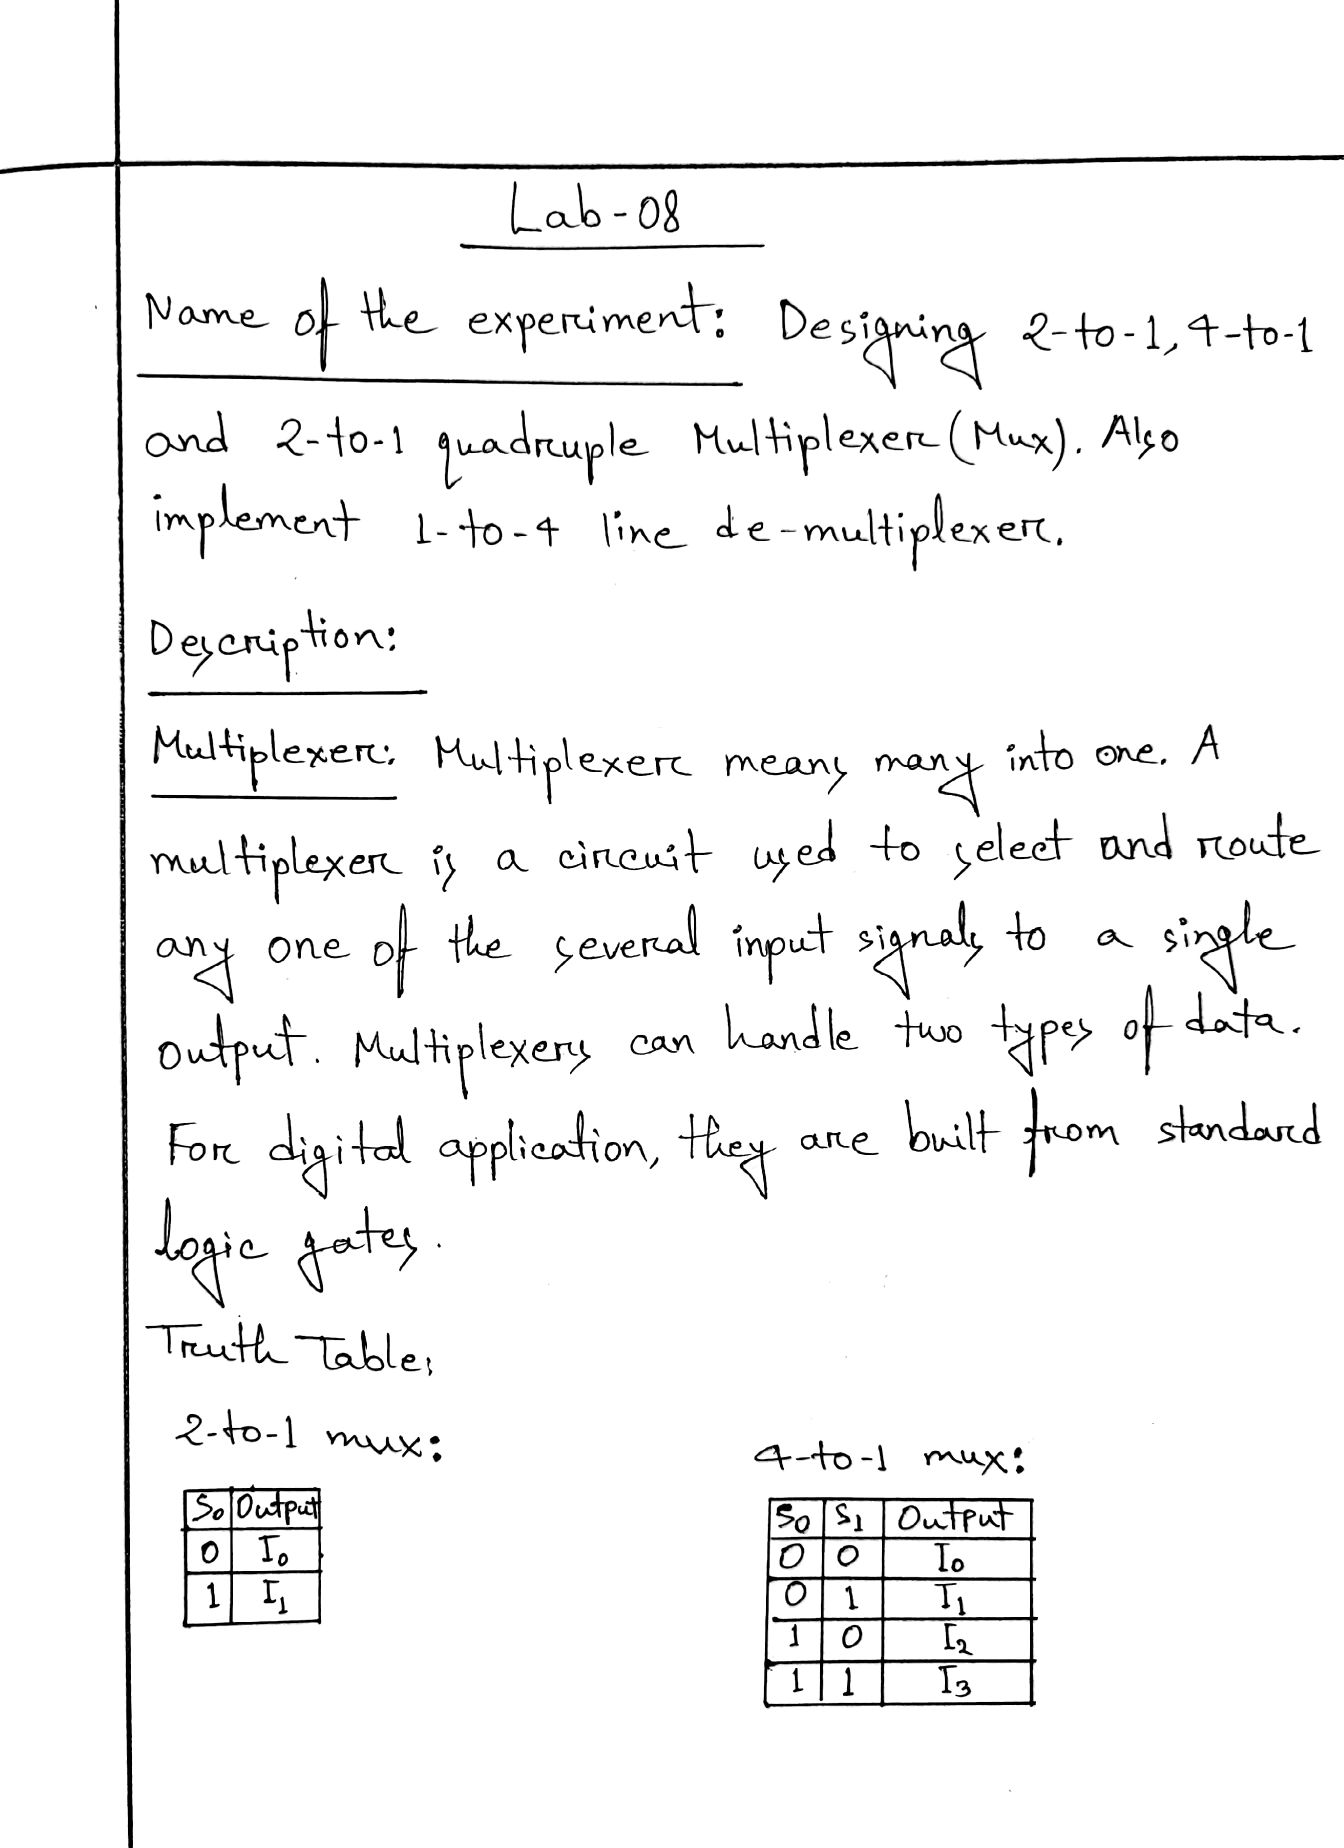 Lab-08
Name of the experiment: Designing 2-to-1, 4-to-1
and 2-to-1 quadruple Multiplexer (Mux). Also
implement 1-to-4 line de-multiplexer.
Description:
Multiplexer: Multiplexer means many into one. A
multiplexer is a circuit used to select and route
any one of the several input signals to a single
output. Multiplexers can handle two types of data.
For digital application, they are built from standard
logic gates.
Truth Table:
2-to-1 mux:
S0 Output
0 I0
1 I1
4-to-1 mux:
S0 S1 Output
0 0 I0
0 1 I1
1 0 I2
1 1 I3